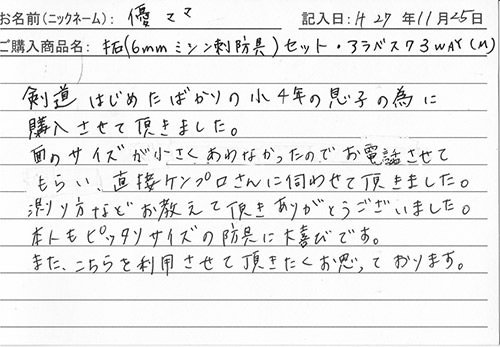 お名前(ニックネーム): 優ママ 記入日:H27年11月25日
ご購入商品名: 拓(6mmミシン刺防具)セット・アラベスク3WAY(M)
剣道はじめたばかりの小4年の息子の為に
購入させて頂きました。
面のサイズが小さくあわなかったのでお電話させて
もらい、直接ケンプロさんに伺わせて頂きました。
測り方などお教えて頂きありがとうございました。
本人もピッタリサイズの防具に大喜びです。
また、こちらを利用させて頂きたくお思っております。